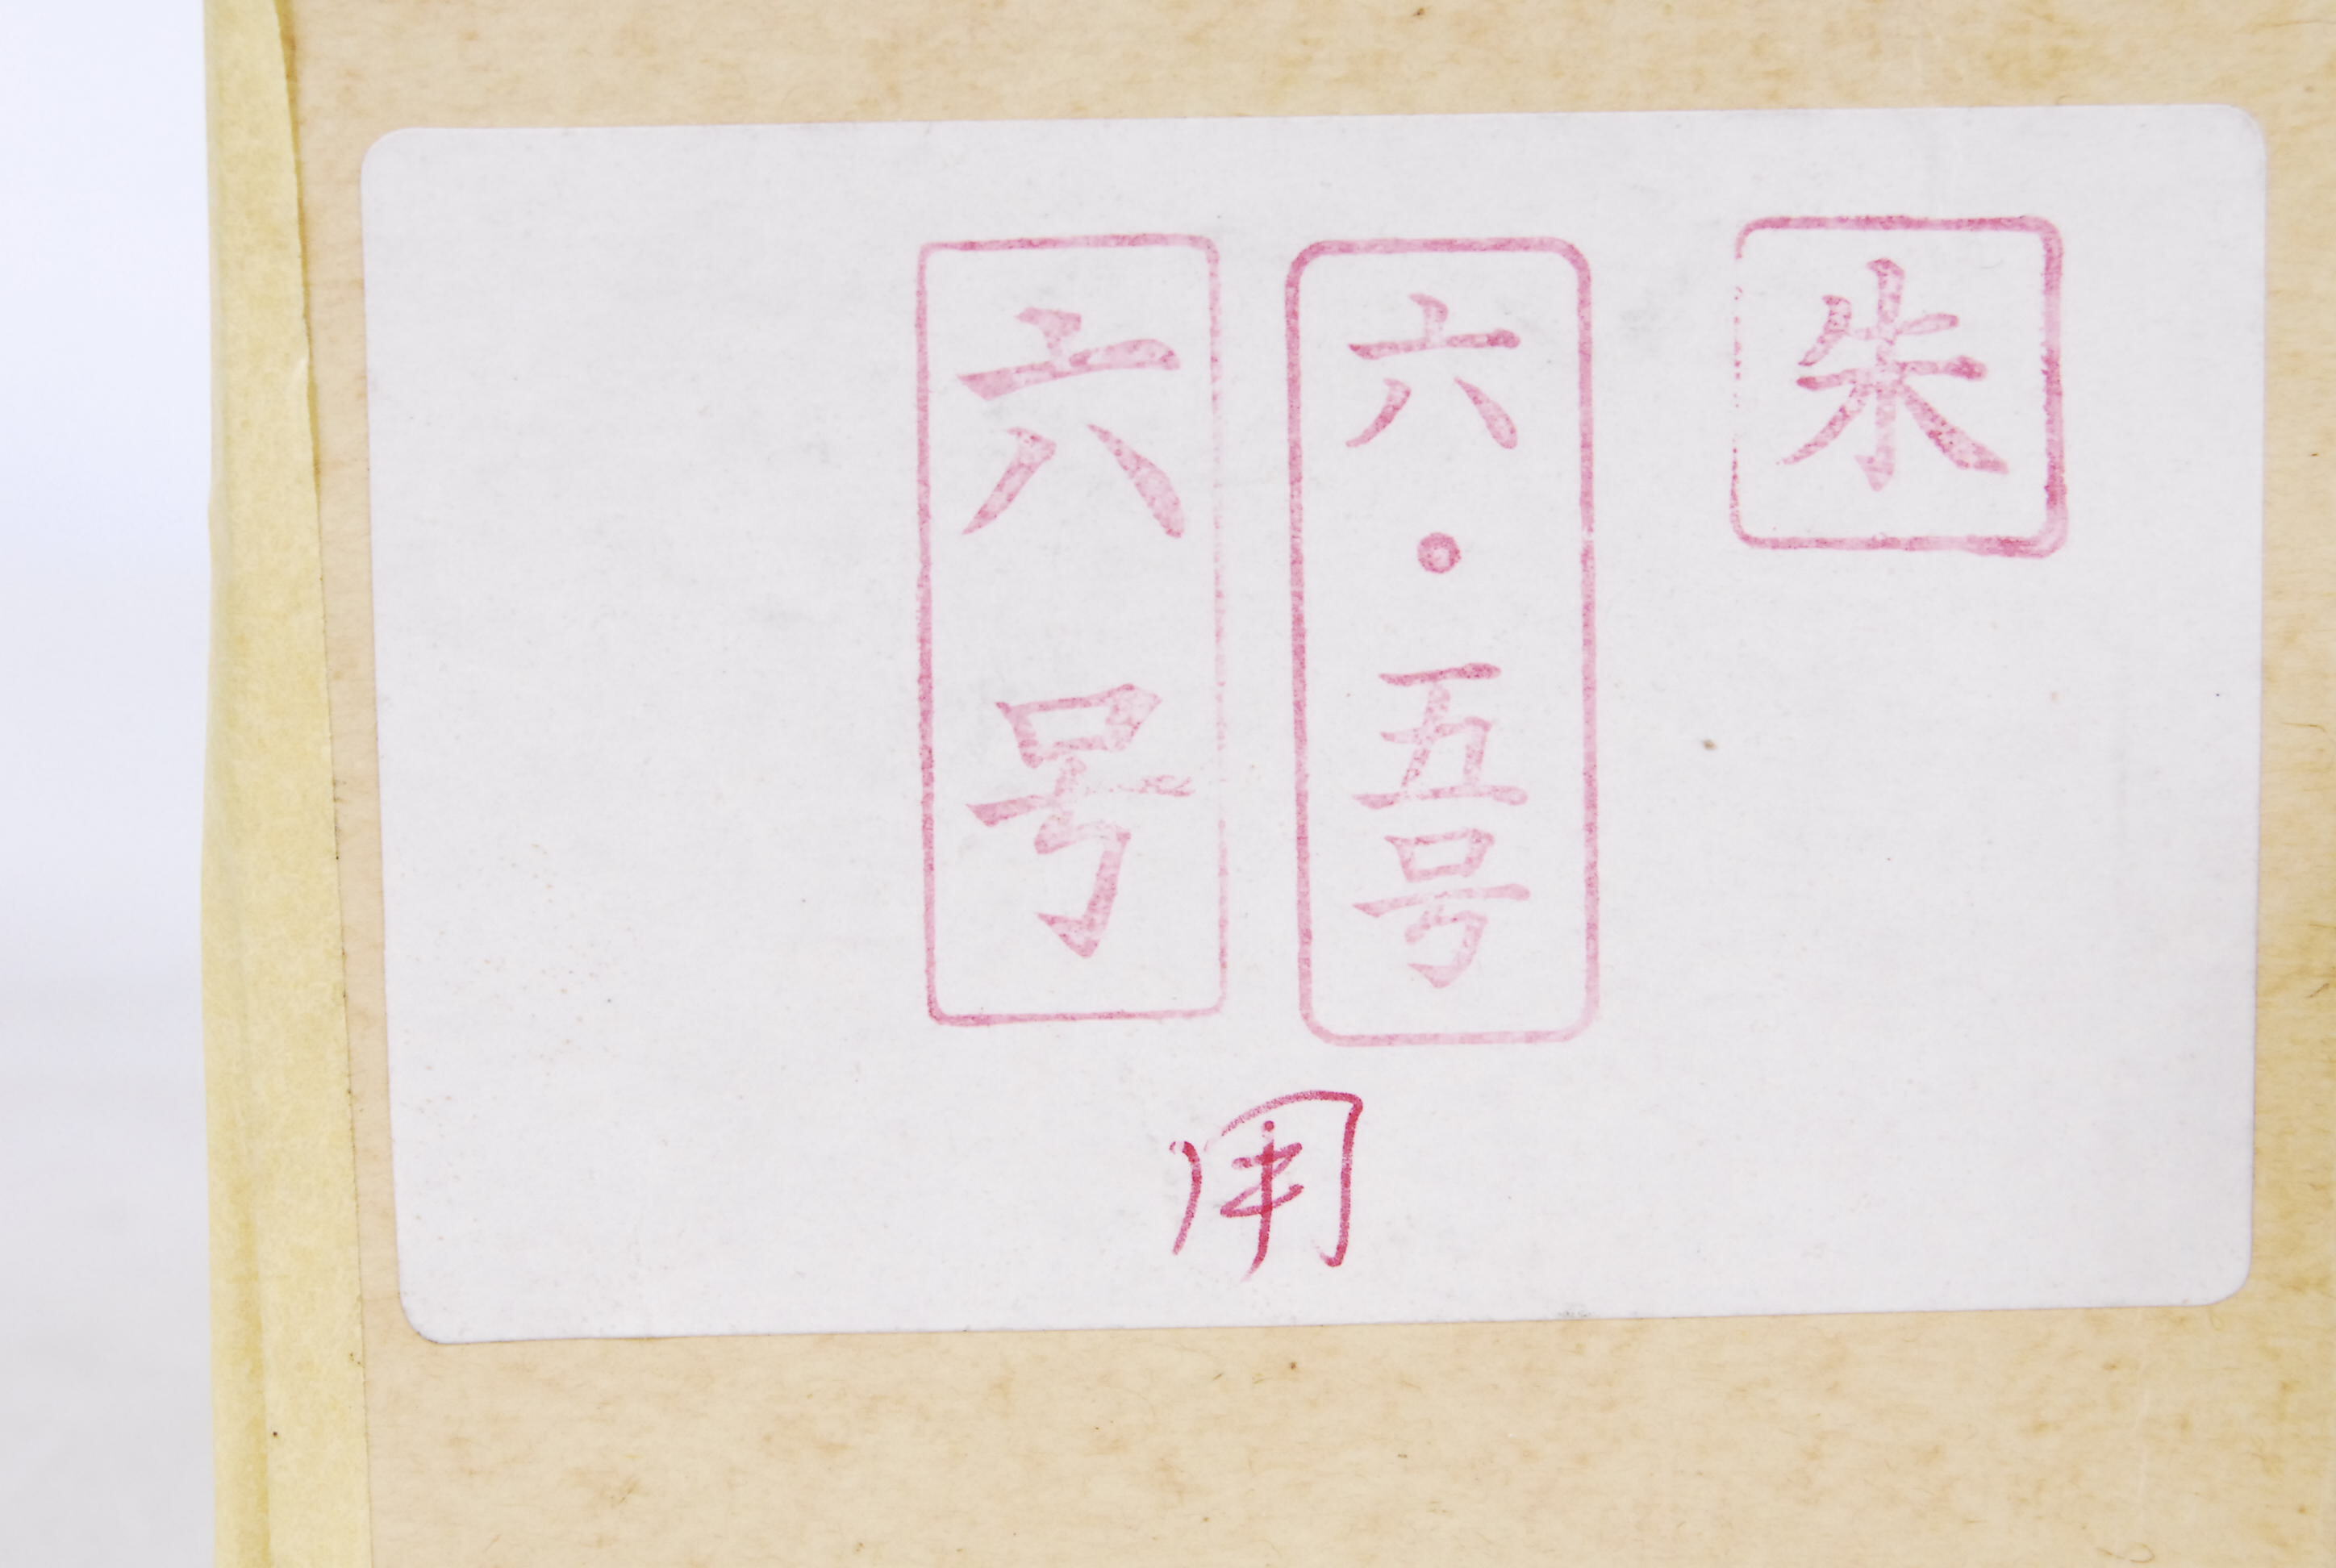 朱
六・五号
六号
用